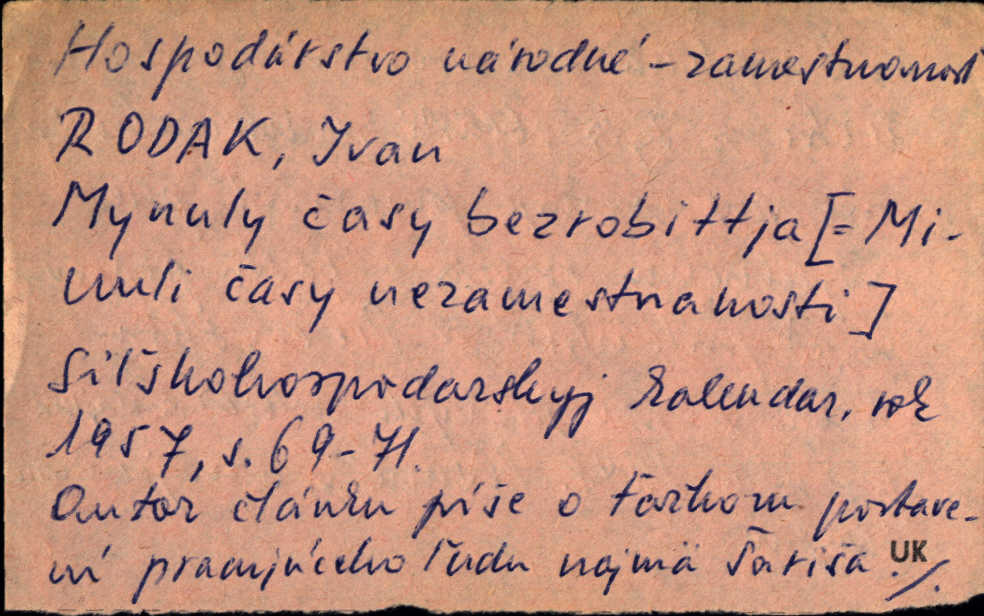 Hospodárstvo národné – zamestnanosť
RODAK, Ivan
Mynuly časy bezrobittja [= Mi-
nuli časy nezamestnanosti]
Siľskohospodarskyj kalendar, rok
1957, s. 69-71.
Autor článku píše o ťažkom postave-
ní pracujúceho ľudu najmä Šariša ./.
UK